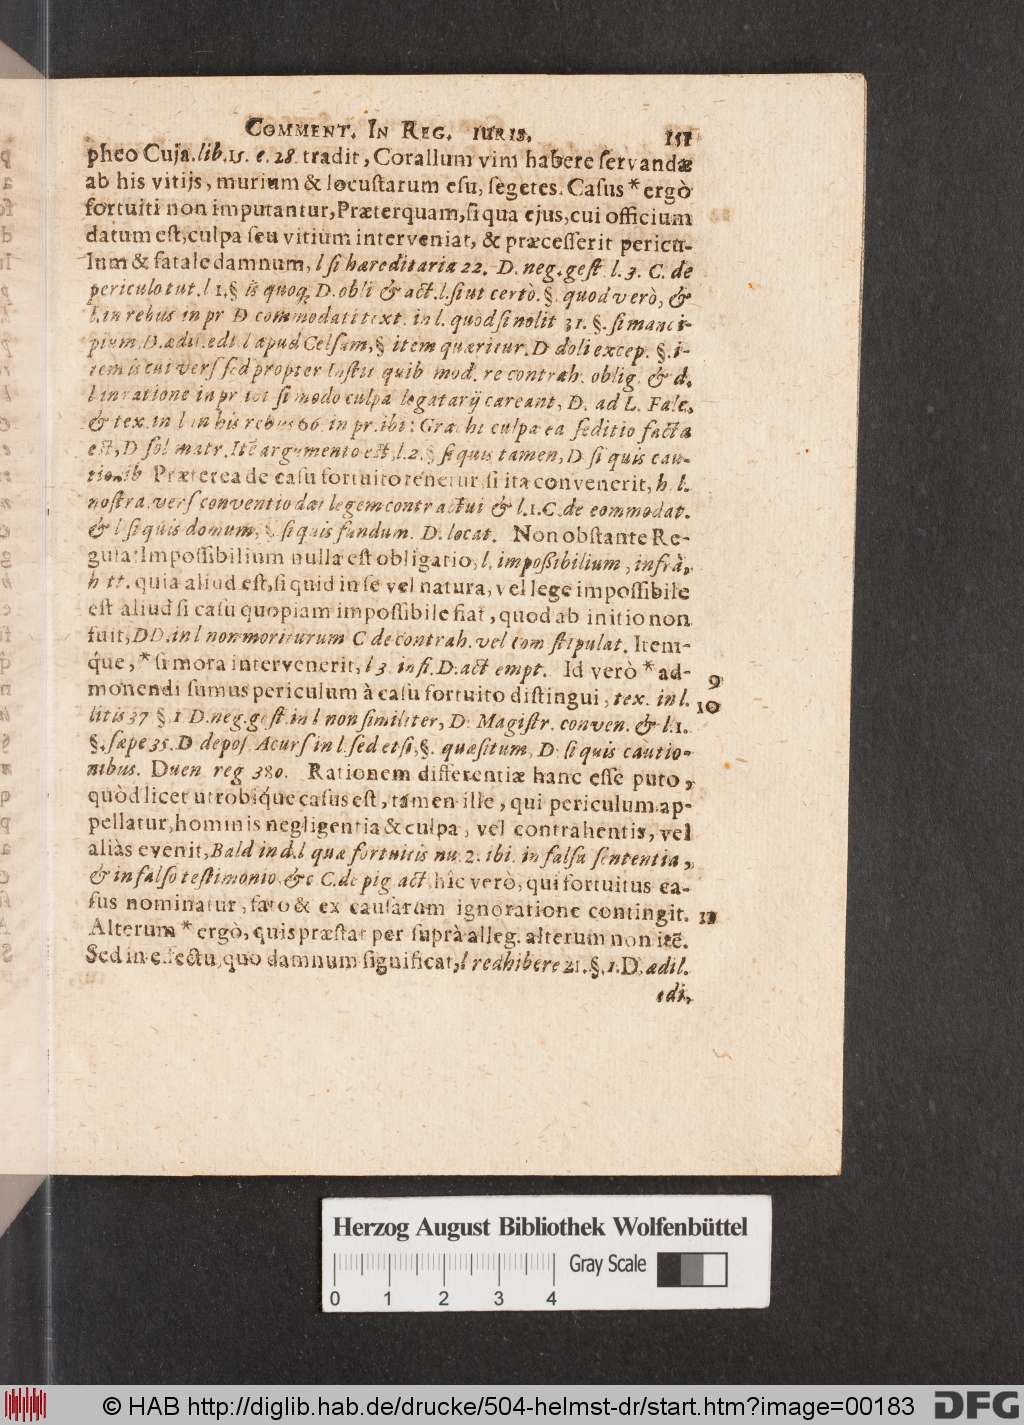 COMMENT. IN REG. IURIS. 151
pheo Cuja. lib. 15. e. 28. tradit, Corallum vim habere servandæ
ab his vitijs, murium & locustarum esu, segetes. Casus * ergò
fortuiti non imputantur, Præterquam, si qua ejus, cui officium
datum est, culpa seu vitium interveniat, & præcesserit pericu-
lum & fatale damnum, l si hæreditaria 22. D. neg. gest. l. 3. C. de
periculo tut. l 1. § is quoq; D. obli & act. l. si ut certò. §. quod verò, &
l. in rebus in pr D commodati text. in l. quod si nolit 31. §. si manci-
pium. D. ædil. edi. l apud Celsum, § item quæritur. D doli excep. §. i-
tem is cui vers sed propter Instit quib mod. re contrah. oblig. & d.
l in ratione in pr tot si modo culpa legatarij careant, D. ad L. Falc.
& tex. in l in his rebus 66. in pr. ibi: Gracchi culpa ea seditio facta
est, D sol matr. Itē argumento est, l. 2. § si quis tamen, D si quis cau-
tionib Præterea de casu fortuito tenetur, si ita convenerit, h. l.
nostra. vers conventio dat legem contractui & l. 1. C. de commodat.
& l si quis domum, §. si quis fundum. D. locat. Non obstante Re-
gula: Impossibilium nulla est obligatio, l. impoßibilium, infrà,
h tt. quia aliud est, si quid in se vel natura, vel lege impossibile
est aliud si casu quopiam impossibile fiat, quod ab initio non
fuit, DD. in l non moriturum C de contrah. vel com stipulat. Item-
q̃ue, * si mora intervenerit, l 3. in fi. D. act empt. Id verò * ad- 9
monendi sumus periculum à casu fortuito distingui, tex. in l. 10
litis 37 §. 1 D. neg. gest. in l non similiter, D. Magistr. conven. & l. 1.
§. sæpe 35. D depos. Acurs in l. sed etsi, §. quæsitum, D. si quis cautio-
nibus. Duen reg 380. Rationem differentiæ hanc esse puto,
quòd licet utrobíque casus est, tamen ille, qui periculum ap-
pellatur, hominis negligentia & culpa, vel contrahentis, vel
aliàs evenit, Bald in d. l quæ fortuitis nu. 2. ibi. in falsa sententia,
& in falso testimonio &c C. de pig act. hîc verò, qui fortuitus ca-
sus nominatur, fato & ex causarum ignoratione contingit. 11
Alterum * ergò, quis præstat per suprà alleg. alterum non itē.
Sed in effectu, quo damnum significat, l redhibere 21. §. 1. D. ædil.
edi,
Herzog August Bibliothek Wolfenbüttel
0 1 2 3 4 Gray Scale
© HAB http://diglib.hab.de/drucke/504-helmst-dr/start.htm?image=00183 DFG